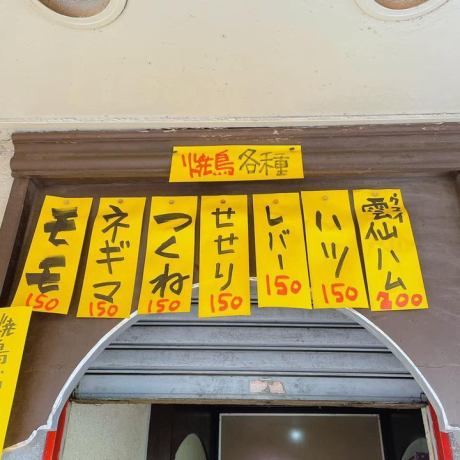 焼鳥 各種
モモ
150
ネギマ
150
つくね
150
せせり
150
レバー
150
ハツ
150
雲仙ハム
200
焼鳥